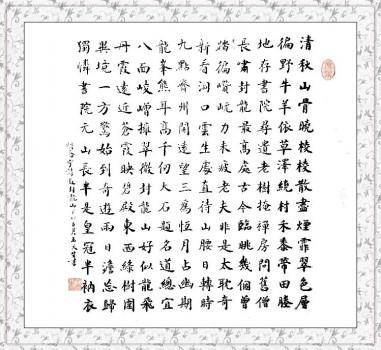 清秋山骨晚棱棱散盡煙霏翠色層
徧野牛羊依草澤繞村禾黍帶田塍
地存書院尋遺老樹掩禪房問舊僧
長嘯封龍最高處古今臨眺幾個曾
踏徧巉岏力未疲老夫非是太耽奇
新看洞口雲生處直待山腰日轉時
九點齊州開遠望三為恆月占幽期
龍峯熊耳高千仞大石題名道總宜
八面崚嶒撐翠微封龍山好似龍飛
丹霞遠近蒼霞映碧殿東西綠樹圍
與境一方驚始到奇遊日澹忘歸
獨憐書院元山長半是皇冠半衲衣